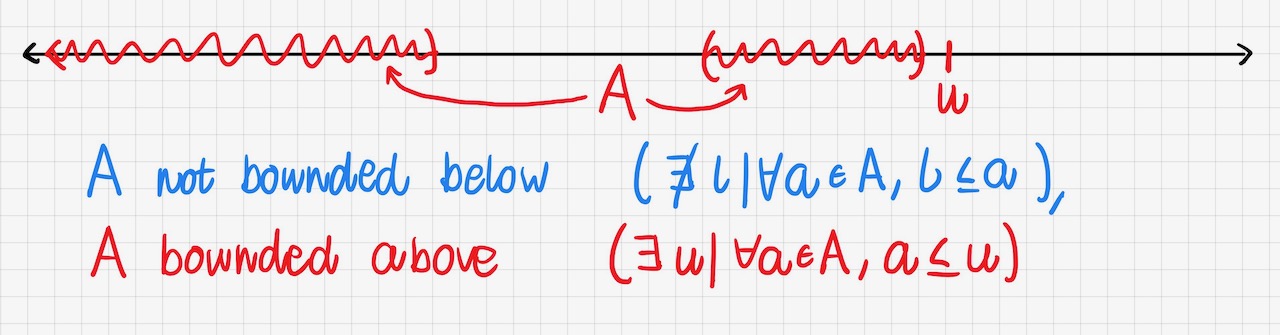 A
u
A not bounded below (∄ l | ∀a ∈ A, l ≤ a),
A bounded above (∃ u | ∀a ∈ A, a ≤ u)